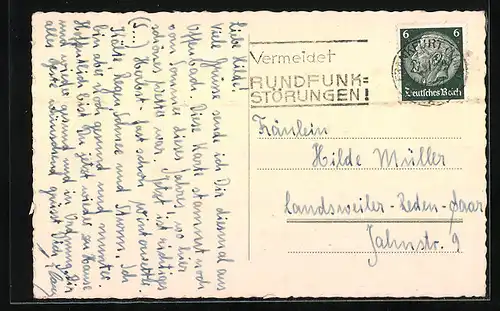 Liebe Hilde!
Viele Grüsse sende ich Dir diesmal aus
Offenbach. Diese Karte stammt noch
vom Sommer dieses Jahres, wo hier
schönes Wetter war. Jetzt ist richtiges
Herbst- fast schon Winterwetter.
Kälte, Regen, Schnee und Sturm. Ich
bin aber noch gesund und munter.
Hoffentlich bist Du jetzt wieder zu Hause
und wieder gesund und in Ordnung. Dir
alles Gute wünschend grüsst Dich
Vermeidet
RUNDFUNK=
STÖRUNGEN!
FRANKFURT
6 6
Deutsches Reich
Fräulein
Hilde Müller
Landsweiler-Reden-Saar
Jahnstr. 9